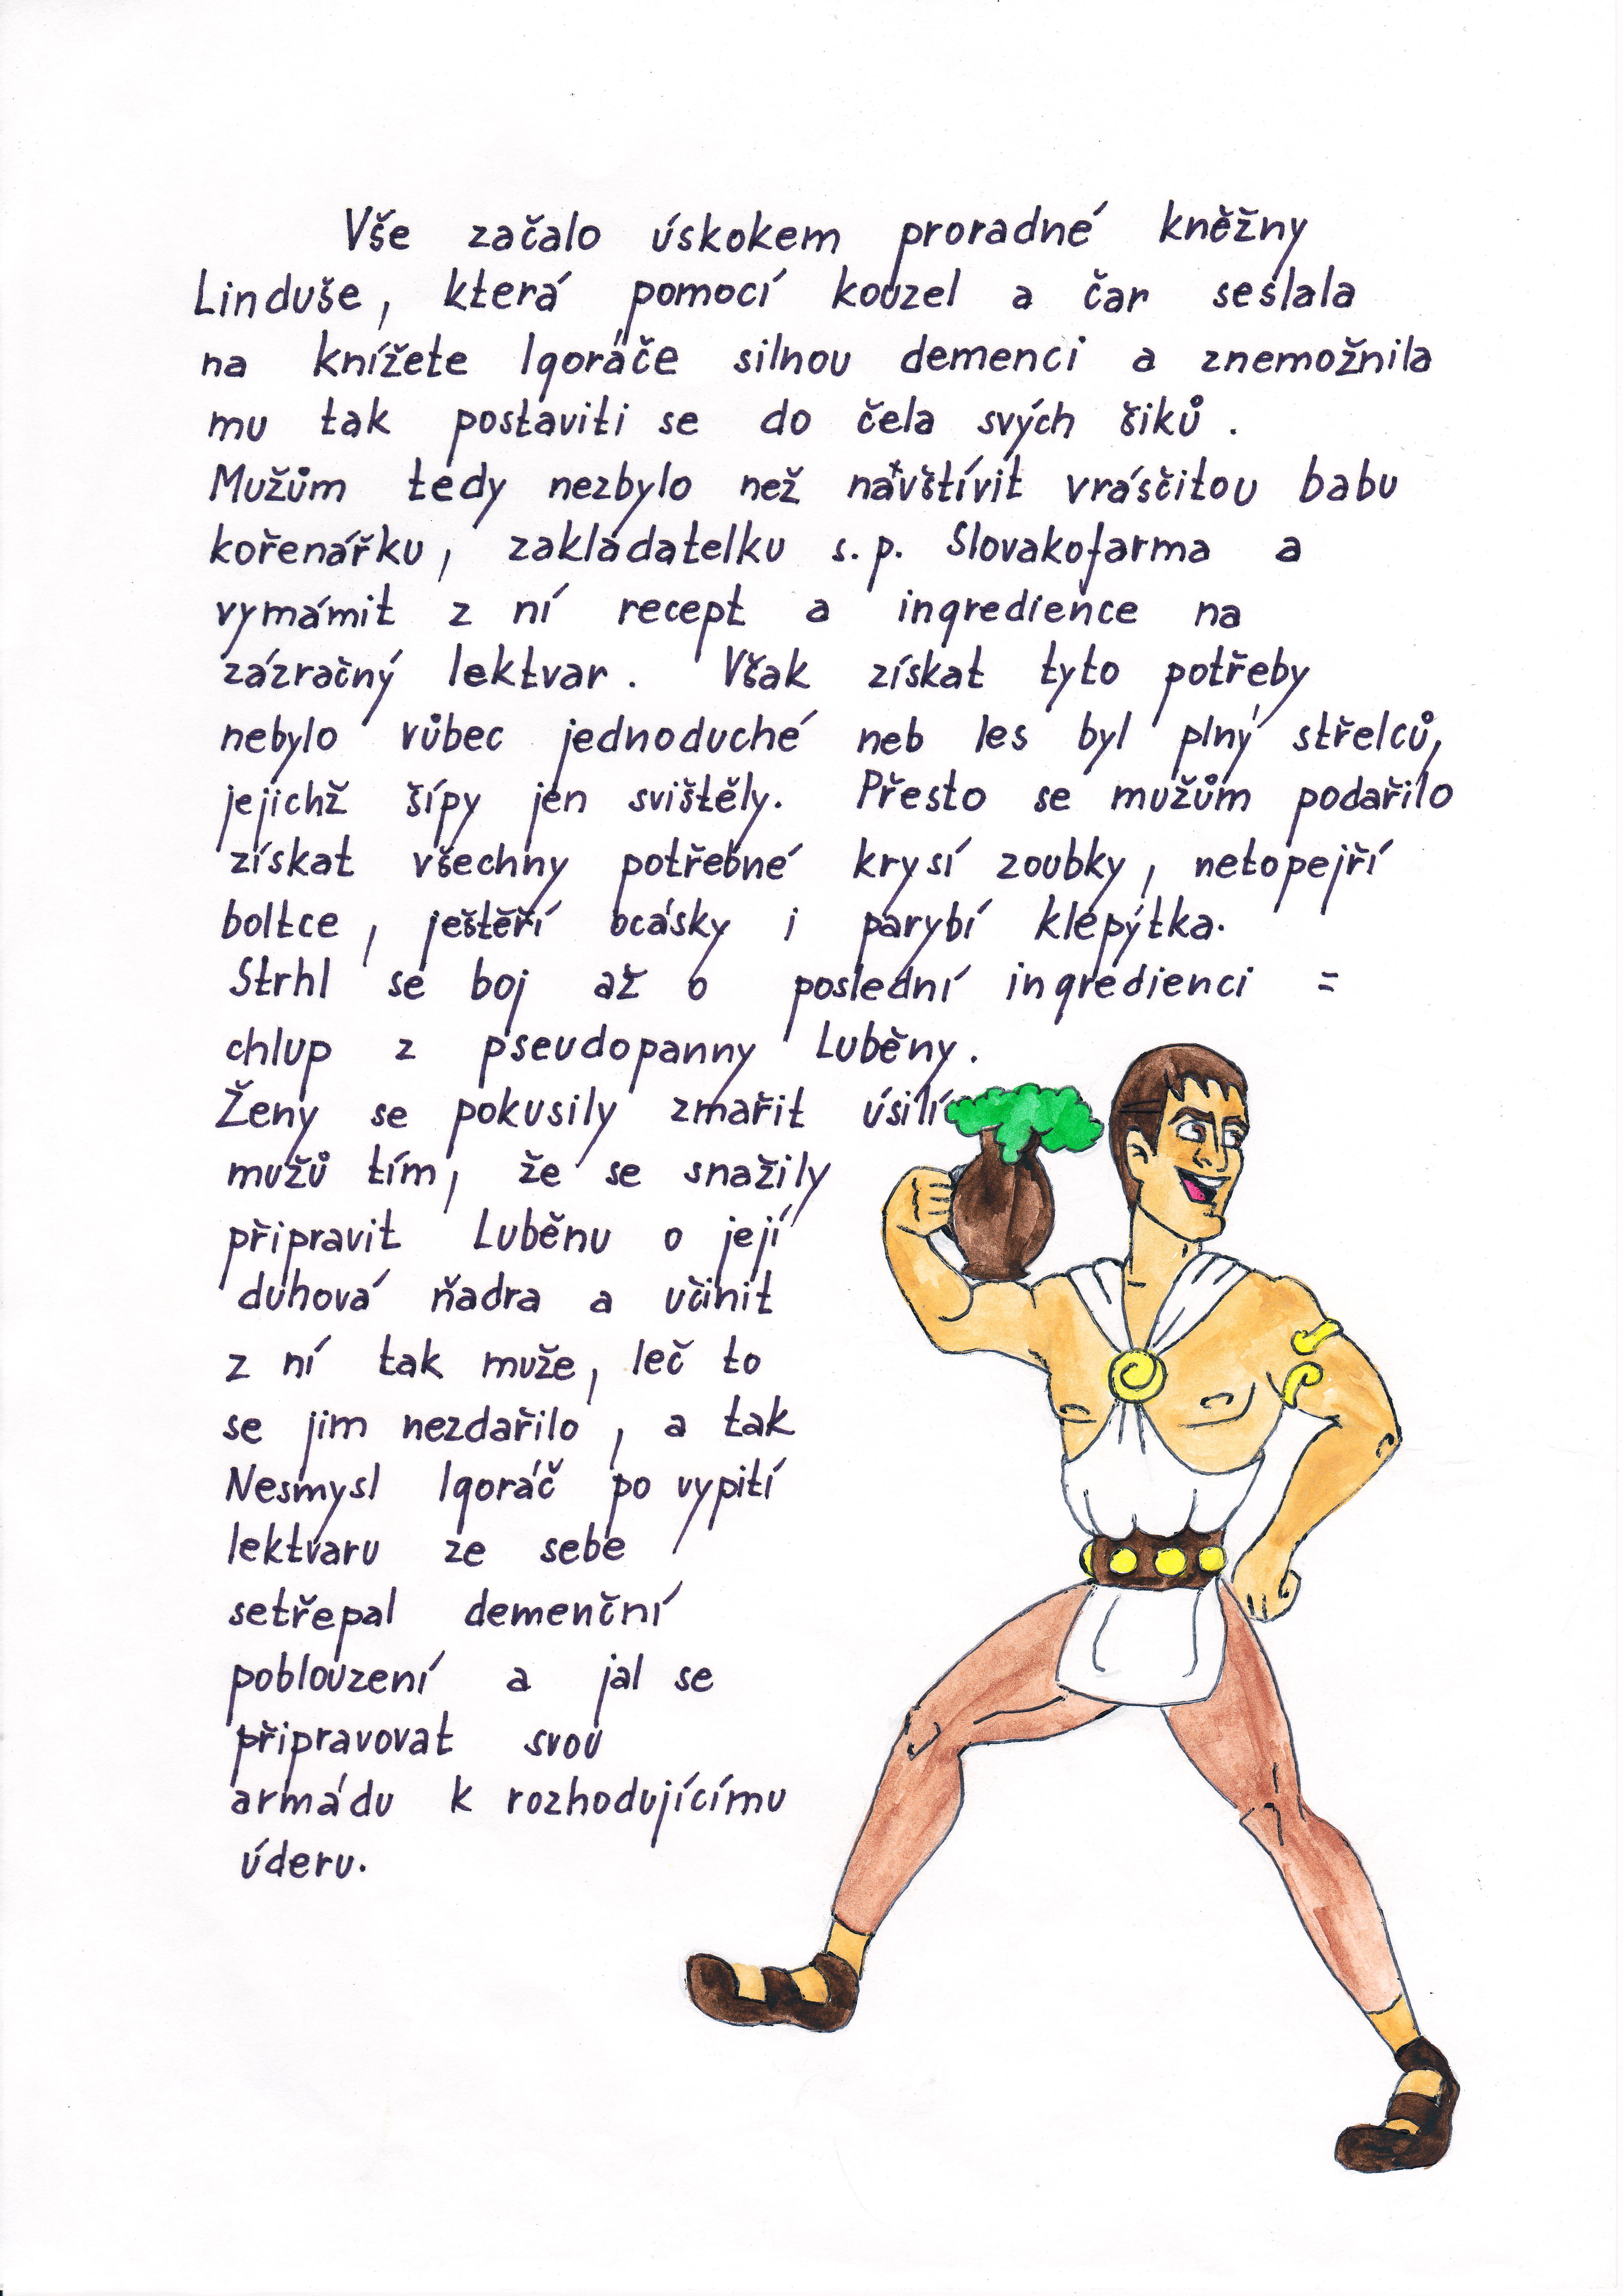 Vše začalo úskokem proradné kněžny
Linduše, která pomocí kouzel a čar seslala
na knížete Igoráče silnou demenci a znemožnila
mu tak postaviti se do čela svých šiků.
Mužům tedy nezbylo než navštívit vrásčitou babu
kořenářku, zakladatelku s.p. Slovakofarma a
vymámit z ní recept a ingredience na
zázračný lektvar. Však získat tyto potřeby
nebylo vůbec jednoduché neb les byl plný střelců,
jejichž šípy jen svištěly. Přesto se mužům podařilo
získat všechny potřebné krysí zoubky, netopejří
boltce, ještěří ocásky i parybí klepýtka.
Strhl se boj až o poslední ingredienci =
chlup z pseudopanny Luběny.
Ženy se pokusily zmařit úsilí
mužů tím, že se snažily
připravit Luběnu o její
duhová ňadra a učinit
z ní tak muže, leč to
se jim nezdařilo, a tak
Nesmysl Igoráč po vypití
lektvaru ze sebe
setřepal demenční
poblouzení a jal se
připravovat svou
armádu k rozhodujícímu
úderu.